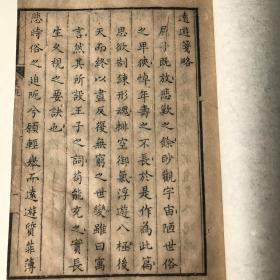 遠遊箋略
屈子既放悲歎之餘眇觀宇宙陋世俗
之卑狹悼年壽之不長於是作為此篇
思欲制鍊形魂排空御氣浮遊八極後
天而終以盡反復無窮之世變雖曰寓
言然其所設王子之詞苟能充之實長
生久視之要訣也
悲時俗之迫阨兮願輕舉而遠遊質菲薄